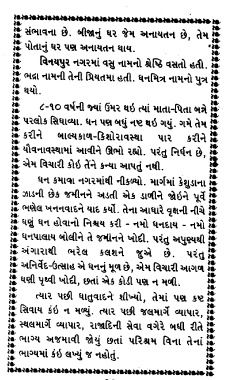 સંભાવના છે. બીજાનું ઘર જેમ અનાયતન છે, તેમ
પોતાનું ઘર પણ અનાયતન થાય.
વિનયપુર નગરમાં વસુ નામનો શ્રેષ્ઠિ વસતો હતી.
ભદ્રા નામની તેની પ્રિયતમા હતી. ધનમિત્ર નામનો પુત્ર
થયો.
૮-૧૦ વર્ષની જ્યાં ઉંમર થઇ ત્યાં માતા-પિતા બન્ને
પરલોક સિધાવ્યા. ધન પણ બધું નષ્ટ થઇ ગયું. ગમે તેમ
કરીને બાલ્યકાળ-કિશોરાવસ્થા પાર કરીને
યૌવનાવસ્થામાં આવીને ઊભો રહ્યો. પરંતુ નિર્ધન છે,
એમ વિચારી કોઇ તેને કન્યા આપતું નથી.
ધન કમાવા નગરમાંથી નીકળ્યો. માર્ગમાં કેશુડાના
ઝાડની છેક જમીનને અડતી એક ડાળીને જોઇને પૂર્વે
ભણેલ ખનનવાદને યાદ કર્યો. તેના આધારે વૃક્ષની નીચે
ઘણું ધન હોવાનો નિશ્ચય કરી - નમો ધનદાય - નમો
ધનપાલાય બોલીને તે જમીનને ખોદી. પરંતુ અપુણ્યથી
અંગારાથી ભરેલ કલશને જુએ છે. પરંતુ
અનિર્વેદ-ઉત્સાહ એ ધનનું મૂળ છે, એમ વિચારી આગળ
ઘણી પૃથ્વી ખોદી, છતાં એક કોડી પણ ન મળી.
ત્યાર પછી ધાતુવાદને શીખ્યો, તેમાં પણ કષ્ટ
સિવાય કંઇ ન મળ્યું. ત્યાર પછી જલમાર્ગે વ્યાપાર,
સ્થલમાર્ગે વ્યાપાર, રાજાદિની સેવા વગેરે બધી રીતે
ભાગ્ય અજમાવી જોયું છતાં પરિશ્રમ વિના તેનાં
ભાગ્યમાં કંઇ લખ્યું જ નહોતું.